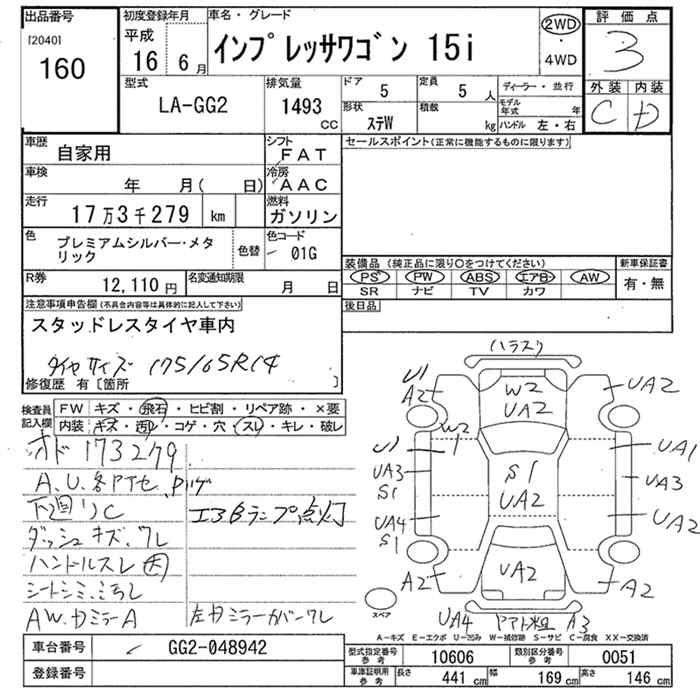 出品番号
[2040]
160
初度登録年月
平成
16 6月
車名・グレード
インプレッサワゴン 15i
2WD
・
4WD
評価点
3
外装 内装
C D
型式
LA-GG2
排気量
1493
cc
ドア
5
定員
5 人
形状
ステW
積載
kg
ディーラー・並行
モデル年式 年
ハンドル 左・右
車歴
自家用
シフト
FAT
車検
年 月( 日)
冷房
AAC
走行
17万3千279 km
燃料
ガソリン
色
プレミアムシルバー・メタリック
色替
色コード
01G
R券
12,110円
名変通知期限
月 日
セールスポイント(正常に機能するものに限ります)
装備品(純正品に限り○をつけてください)
PS PW ABS エアB AW
SR ナビ TV カワ
新車保証書
有・無
後日品
注意事項申告欄(不具合内容等は具体的に記入して下さい)
スタッドレスタイヤ車内
タイヤサイズ 175/65R14
修復歴 有〔箇所 〕
検査員記入欄
FW キズ・飛石・ヒビ割・リペア跡・×要
内装 キズ・汚レ・コゲ・穴・スレ・キレ・破レ
オド 173279
A.U.各PTセ
下廻リC
エアBランプ点灯
ダッシュキズ、ワレ
ハンドルスレ 大
シートシミ、
AW.カラーA
左ドミラーカバーワレ
(ハラスリ)
U1
A2
W2
UA2
UA2
W2
U1
UA3
S1
S1
UA2
UA1
UA3
UA2
UA4
S1
A2
UA2
A2
UA4
A3
スペア
A-キズ E-エクボ U-凹み W-補修跡 S-サビ C-腐食 XX-交換済
車台番号
GG2-048942
登録番号
型式指定番号
参考
10606
類別区分番号
参考
0051
車庫証明用
参考
長さ
441 cm
幅
169 cm
高さ
146 cm